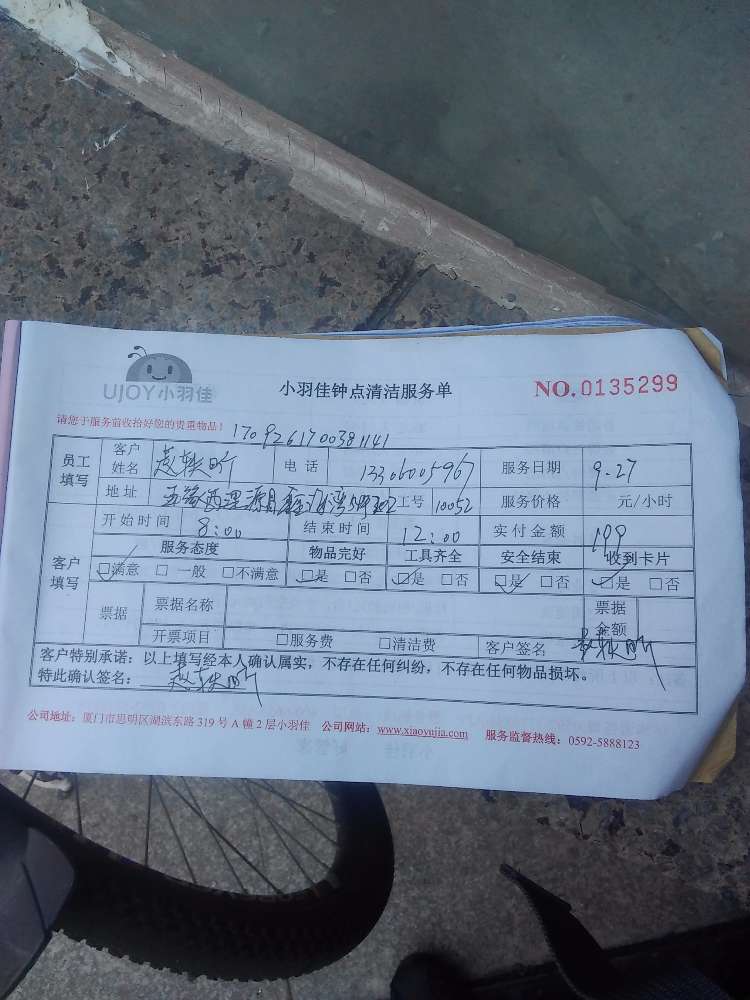 UJOY小羽佳 小羽佳钟点清洁服务单 NO.0135299
请您于服务前收拾好您的贵重物品! 1709261700381141
员工填写 客户姓名 赵轶昕 电话 13306005967 服务日期 9.27
地址 工号 10052 服务价格 元/小时
客户填写 开始时间 8:00 结束时间 12:00 实付金额 199
服务态度 物品完好 工具齐全 安全结束 收到卡片
□满意 □一般 □不满意 □是 □否 □是 □否 □是 □否 □是 □否
票据 票据名称 票据金额
开票项目 □服务费 □清洁费 客户签名 赵轶昕
客户特别承诺:以上填写经本人确认属实,不存在任何纠纷,不存在任何物品损坏。
特此确认签名: 赵轶昕
公司地址:厦门市思明区湖滨东路319号A幢2层小羽佳 公司网站:www.xiaoyujia.com 服务监督热线:0592-5888123